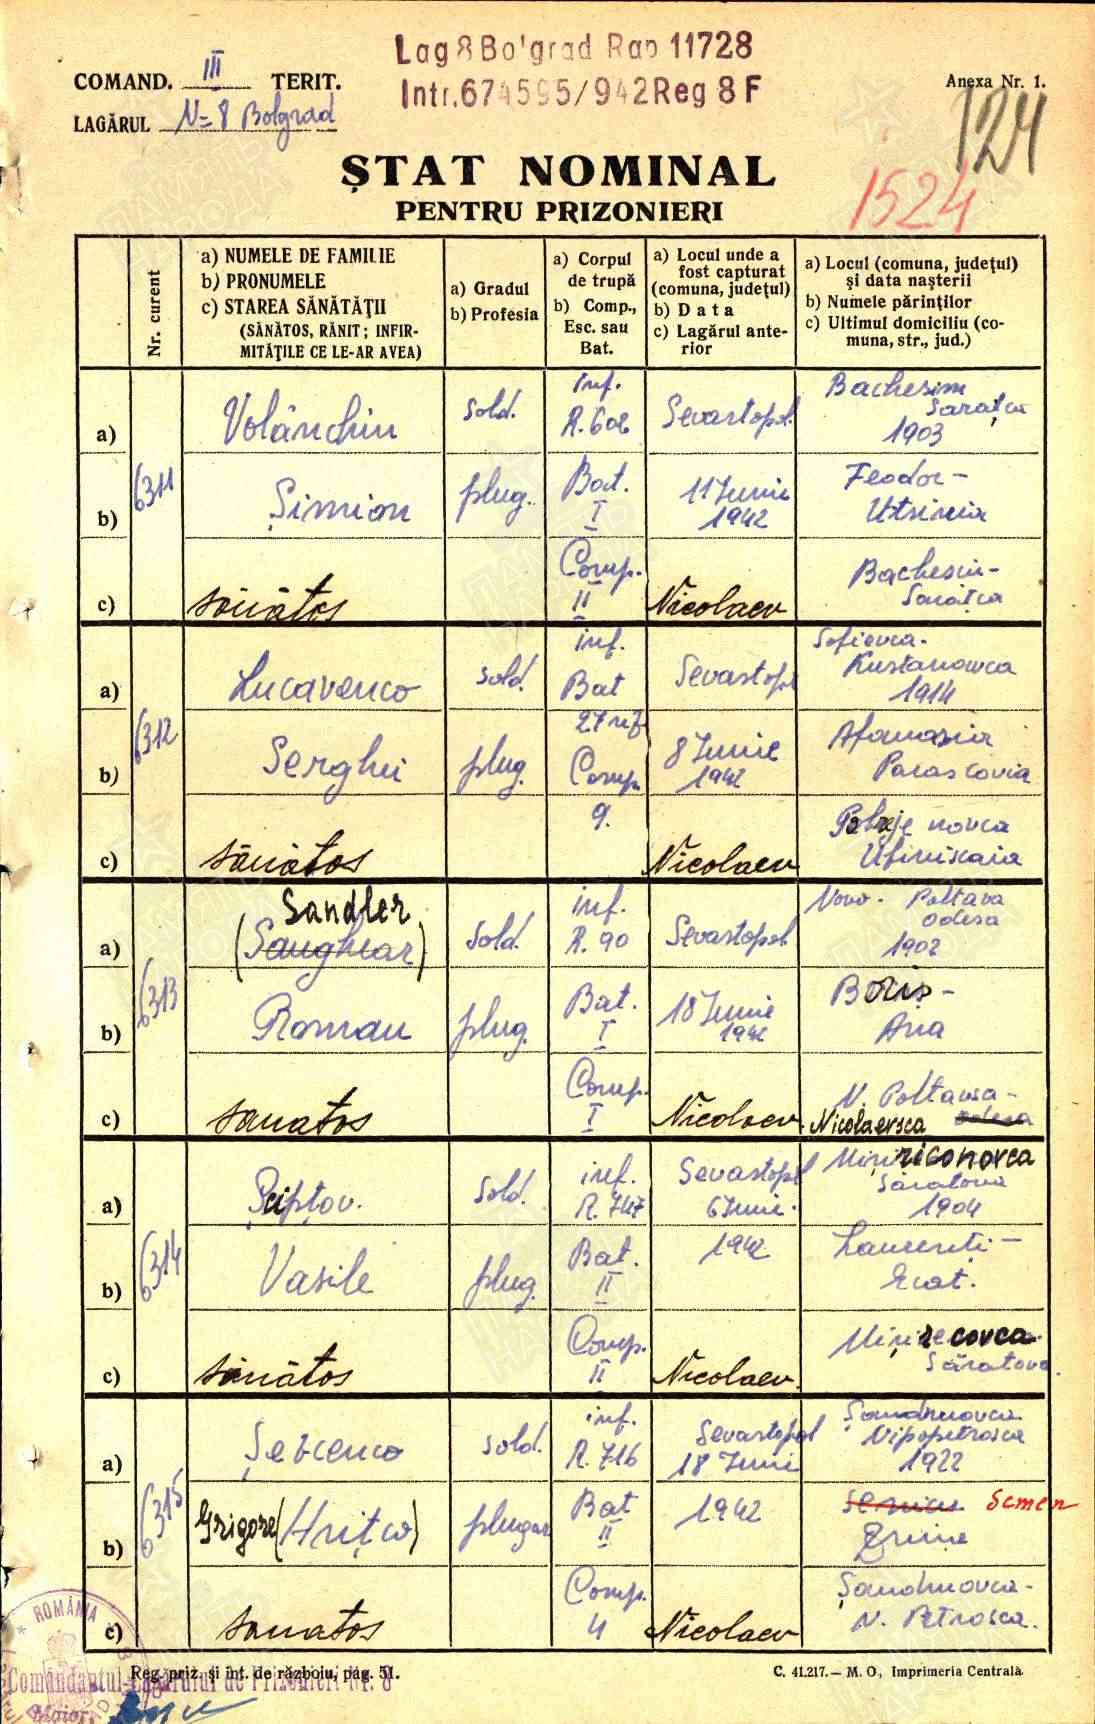 Lag 8 Bolgrad Rap 11728
Intr. 674595/942 Reg 8 F
COMAND. III TERIT.
Anexa Nr. 1.
LAGĂRUL N= 8 Bolgrad
124
1524
ȘTAT NOMINAL
PENTRU PRIZONIERI
Nr. curent
a) NUMELE DE FAMILIE
b) PRONUMELE
c) STAREA SĂNĂTĂȚII
(SĂNĂTOS, RĂNIT; INFIR-
MITĂȚILE CE LE-AR AVEA)
a) Gradul
b) Profesia
a) Corpul
de trupă
b) Comp.,
Esc. sau
Bat.
a) Locul unde a
fost capturat
(comuna, județul)
b) Data
c) Lagărul ante-
rior
a) Locul (comuna, județul)
și data nașterii
b) Numele părinților
c) Ultimul domiciliu (co-
muna, str., jud.)
6311
a) Volânchin
sold.
inf.
R. 602
Sevastopol
Bachesim
Sarațca
1903
b) Șimion
plug.
Bat.
I
11 Iunie
1942
Feodor -
c) sănătos
Comp.
II
Nicolaev
Bachesim-
Sarațca
6312
a) Lucavenco
sold.
inf.
Bat
Sevastopol
Sofievca.
1914
b) Serghii
plug.
27
Comp.
8 Iunie
1942
Afanasia
Parascovia
c) sănătos
9.
Nicolaev
6313
Sandler
a) (Saughear)
sold.
inf.
R. 90
Sevastopol
Novo-Poltava
Odesa
1902
b) Roman
plug.
Bat.
I
18 Iunie
1942
Boris -
Ana
c) sanatos
Comp.
I
Nicolaev.
N. Poltavsa-
Nicolaevsca Odesa
6314
a) Pciptov.
sold.
inf.
R. 747
Sevastopol
6 Iunie.
1942
Săratova
1904
b) Vasile
plug.
Bat.
II
Laurenti -
Ecat.
c) sănătos
Comp.
II
Nicolaev.
Săratova.
6315
a) Șevcenco
sold.
inf.
R. 716
Sevastopol
18 Iunie
1942
Șandruovca
Nipopetrosca
1922
b) Grigore (Hrițco)
plugar
Bat
II
Semen
c) sanatos
Comp.
4
Nicolaev
Șandruovca-
N. Petrosca.
ROMÂNIA
Comandantul Lagărului de Prizonieri Nr. 8
Maior
Reg. priz. și int. de războiu, pag. 51.
C. 41.217.— M. O., Imprimeria Centrală.